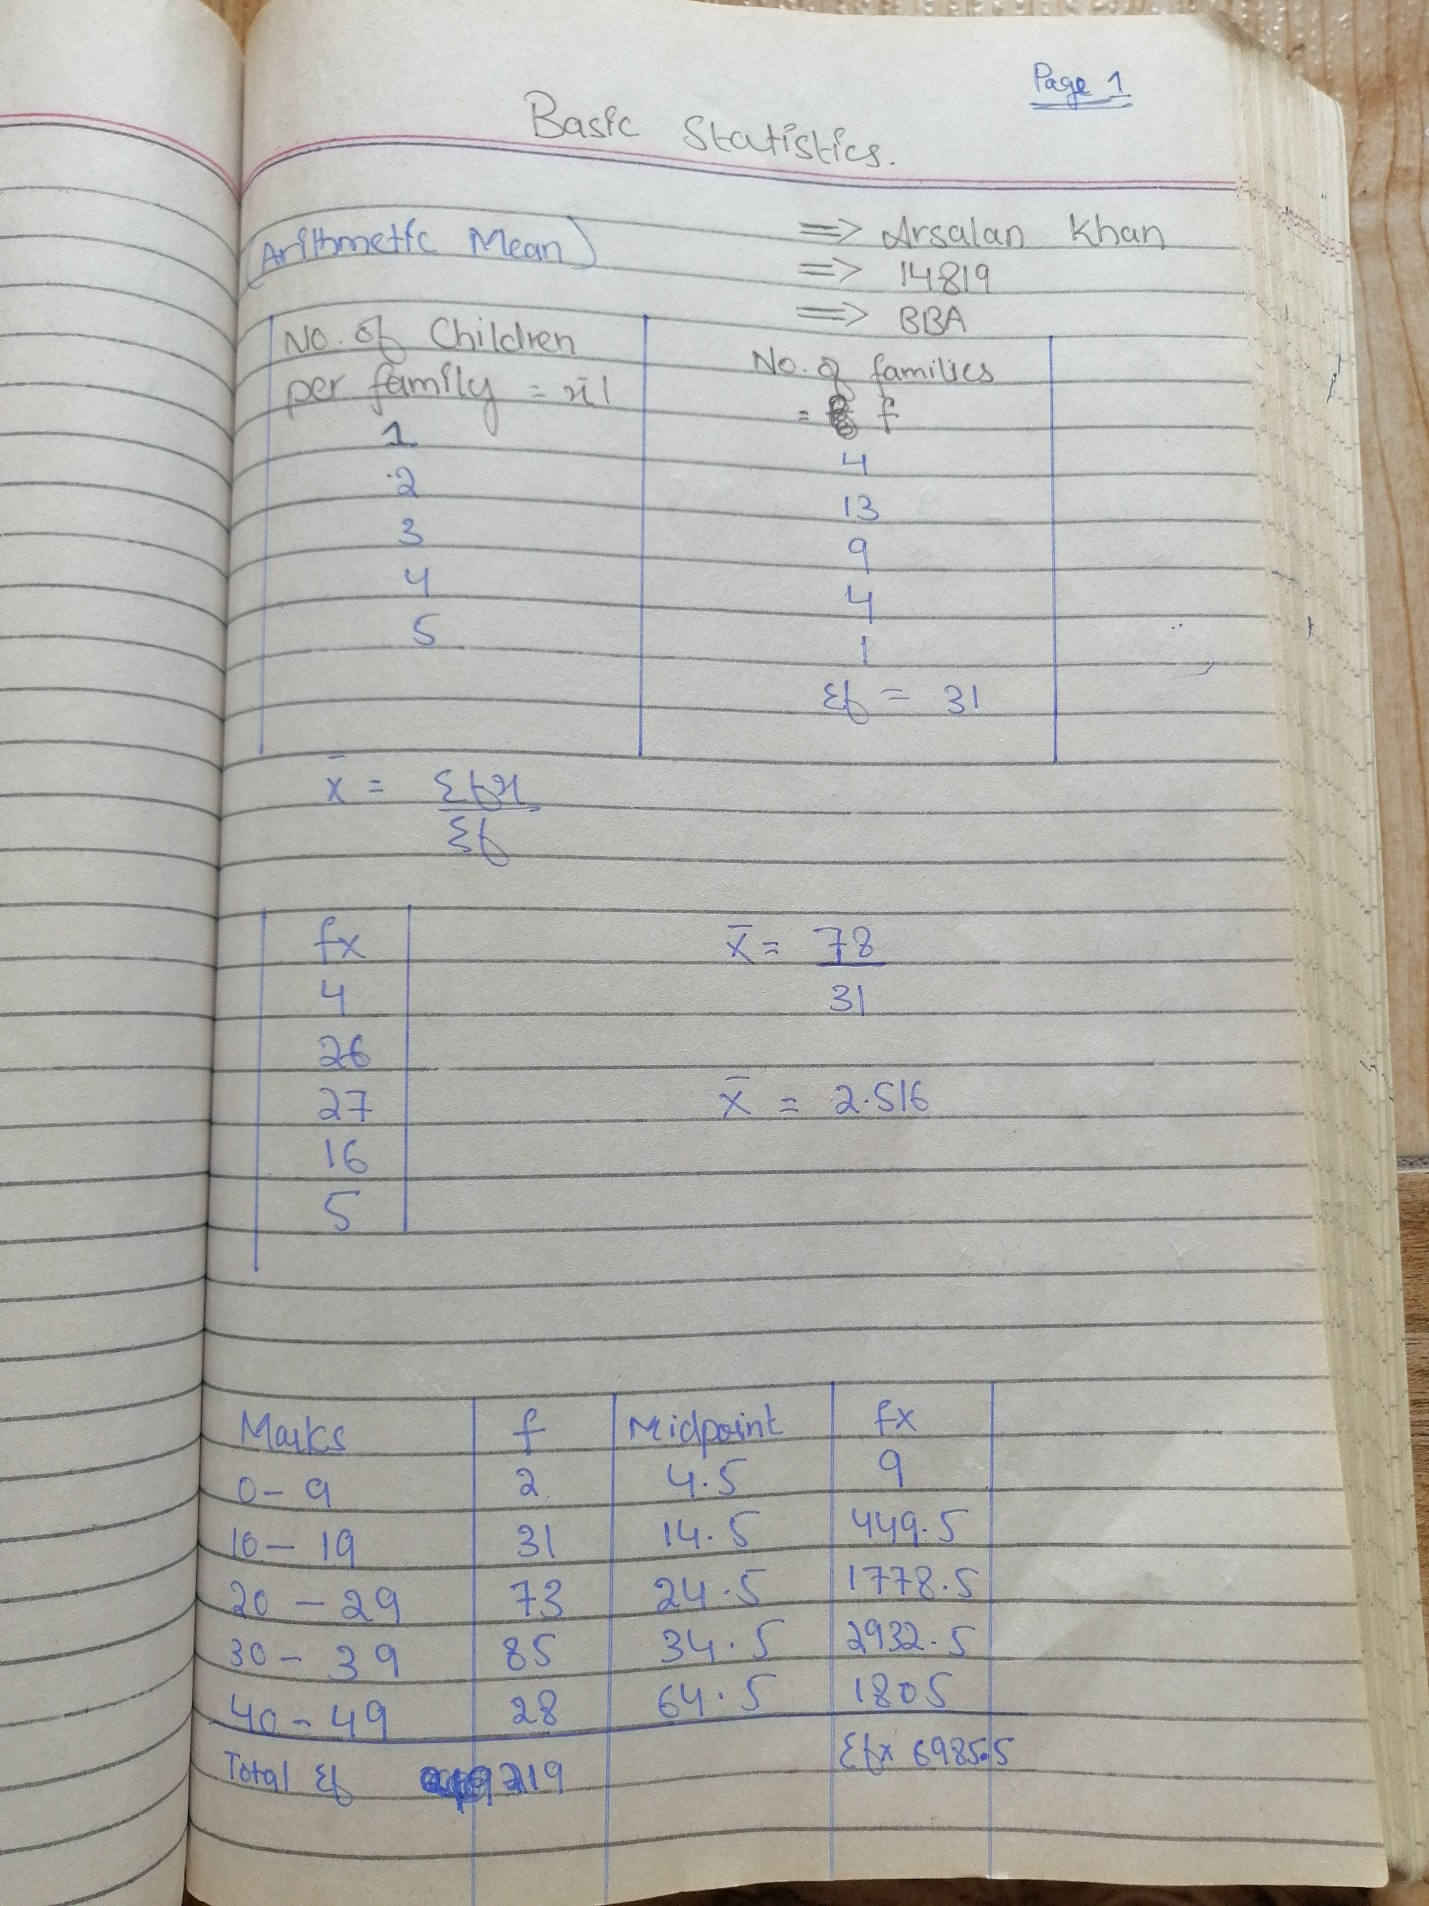 Page 1
Basic Statistics.
(Arithmetic Mean)
=> Arsalan Khan
=> 14819
=> BBA
No. of Children per family = x | No. of families = f
1 4
2 13
3 9
4 4
5 1
Σf = 31
x̄ = Σfx
Σf
fx
4
26
27
16
5
x̄ = 78
31
x̄ = 2.516
Marks f Midpoint fx
0-9 2 4.5 9
10-19 31 14.5 449.5
20-29 73 24.5 1778.5
30-39 85 34.5 2932.5
40-49 28 64.5 1805
Total Σf 219 Σfx 6985.5